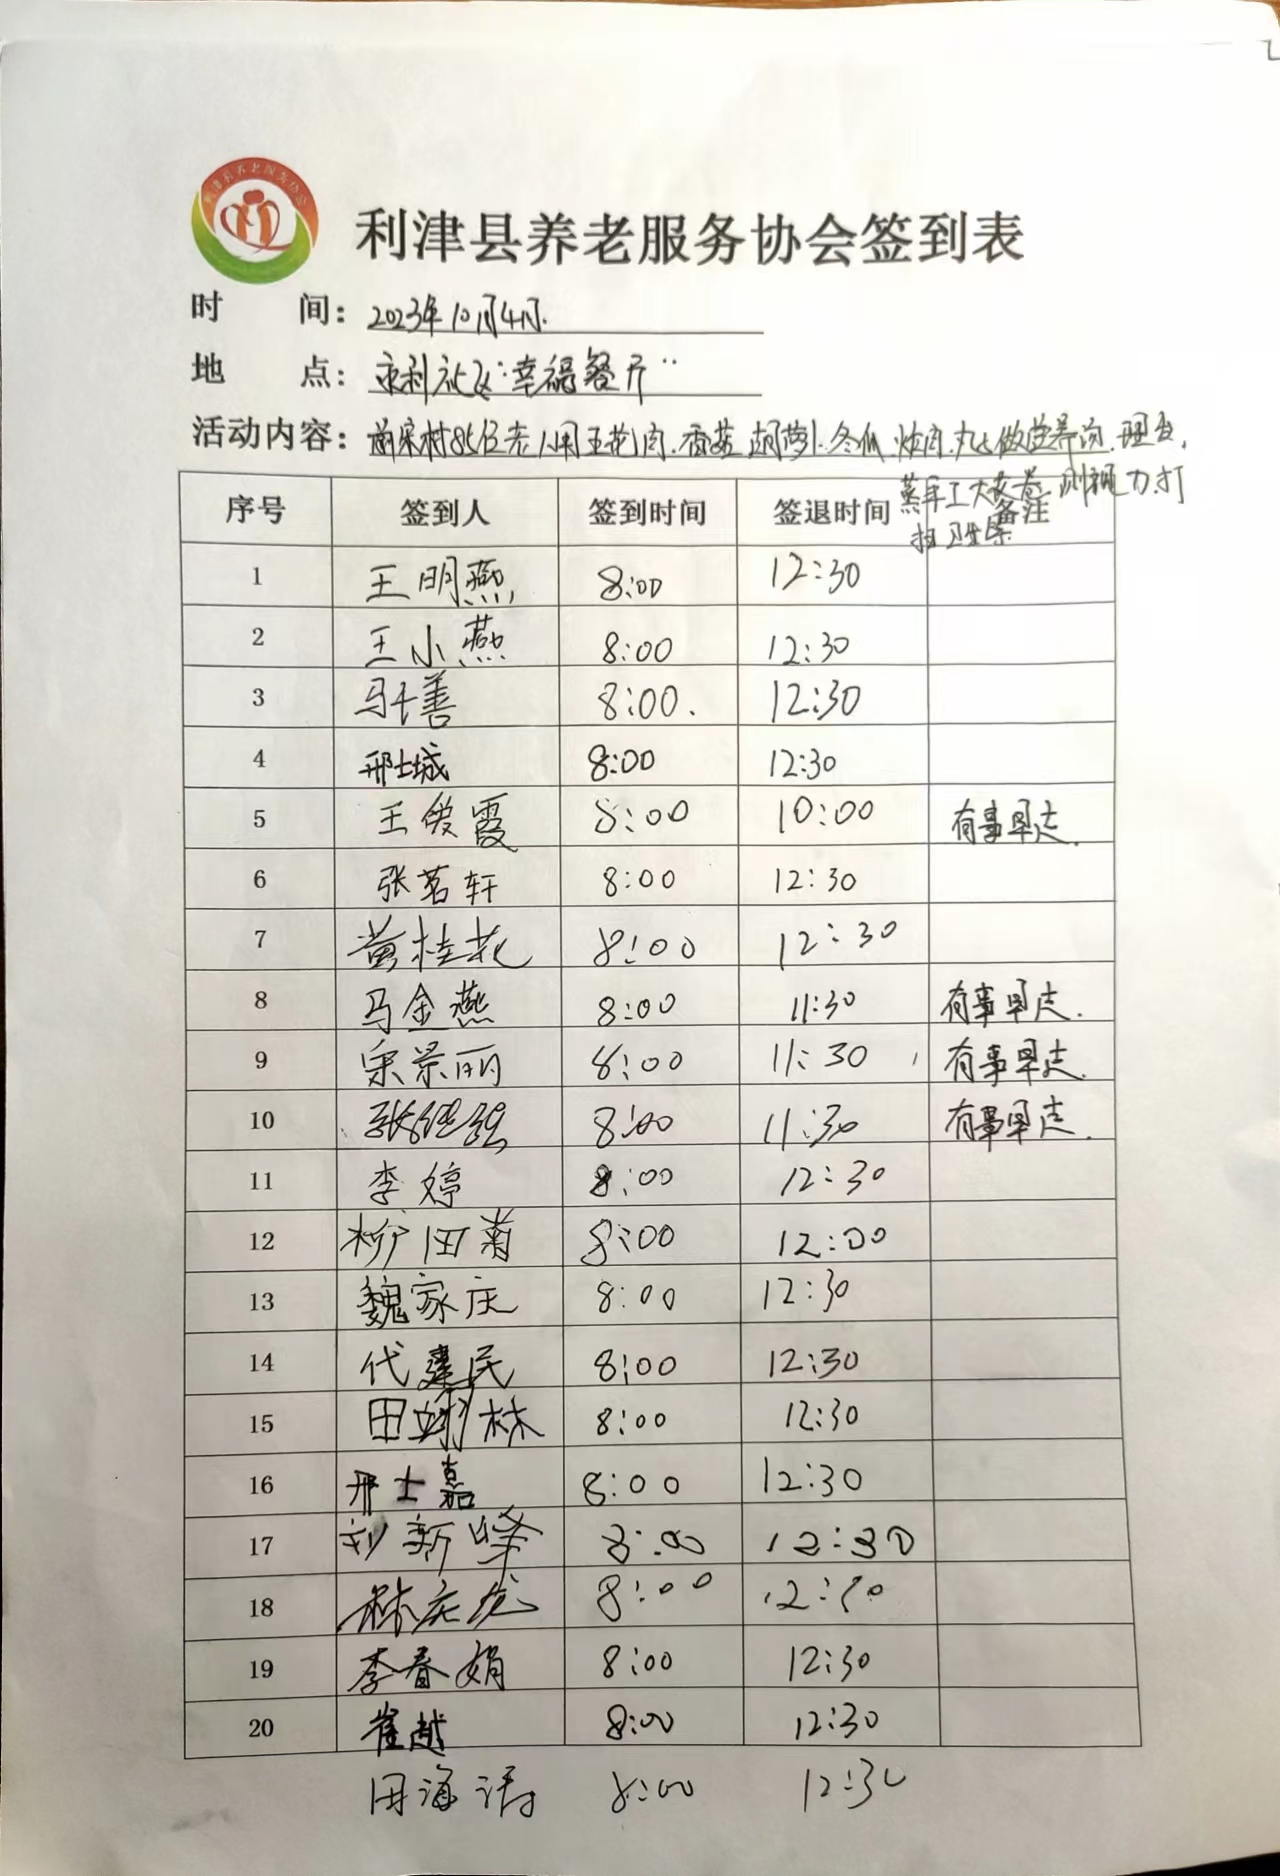 利津县养老服务协会
利津县养老服务协会签到表
时 间：2023年10月4日.
地 点：永利社区“幸福餐厅”
活动内容：前宋村85位老人用五花肉.香菇.胡萝卜.冬瓜.炖肉.丸子做营养汤.理发.
蒸手工大花卷.测视力.打
扫卫生等
序号 签到人 签到时间 签退时间 备注
1 王明燕 8:00 12:30
2 王小燕 8:00 12:30
3 马士善 8:00. 12:30
4 邢士城 8:00 12:30
5 王俊霞 8:00 10:00 有事早走.
6 张茗轩 8:00 12:30
7 黄桂花 8:00 12:30
8 马金燕 8:00 11:30 有事早走.
9 宋景丽 8:00 11:30 有事早走.
10 张继强 8:00 11:30 有事早走.
11 李婷 8:00 12:30
12 柳田菊 8:00 12:00
13 魏家庆 8:00 12:30
14 代建民 8:00 12:30
15 田林 8:00 12:30
16 邢士嘉 8:00 12:30
17 刘新峰 8:00 12:30
18 林庆龙 8:00 12:30
19 李春娟 8:00 12:30
20 崔越 8:00 12:30
海涛 8:00 12:30